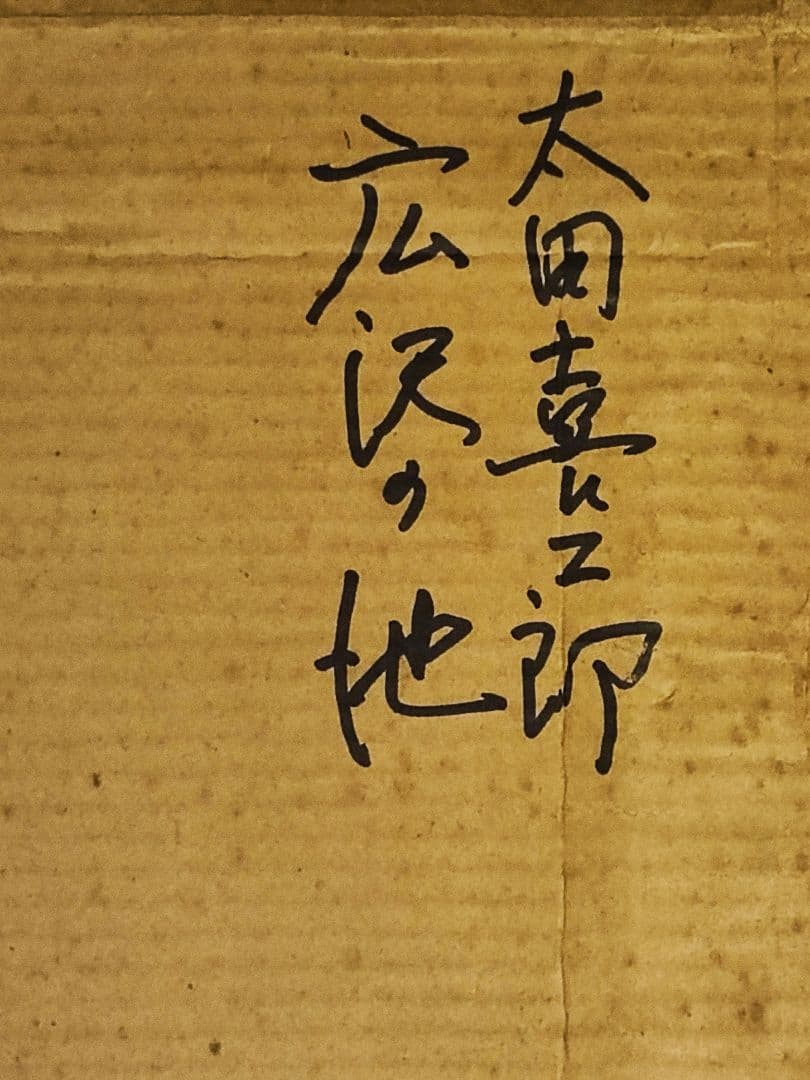 太田喜二郎
広沢の池